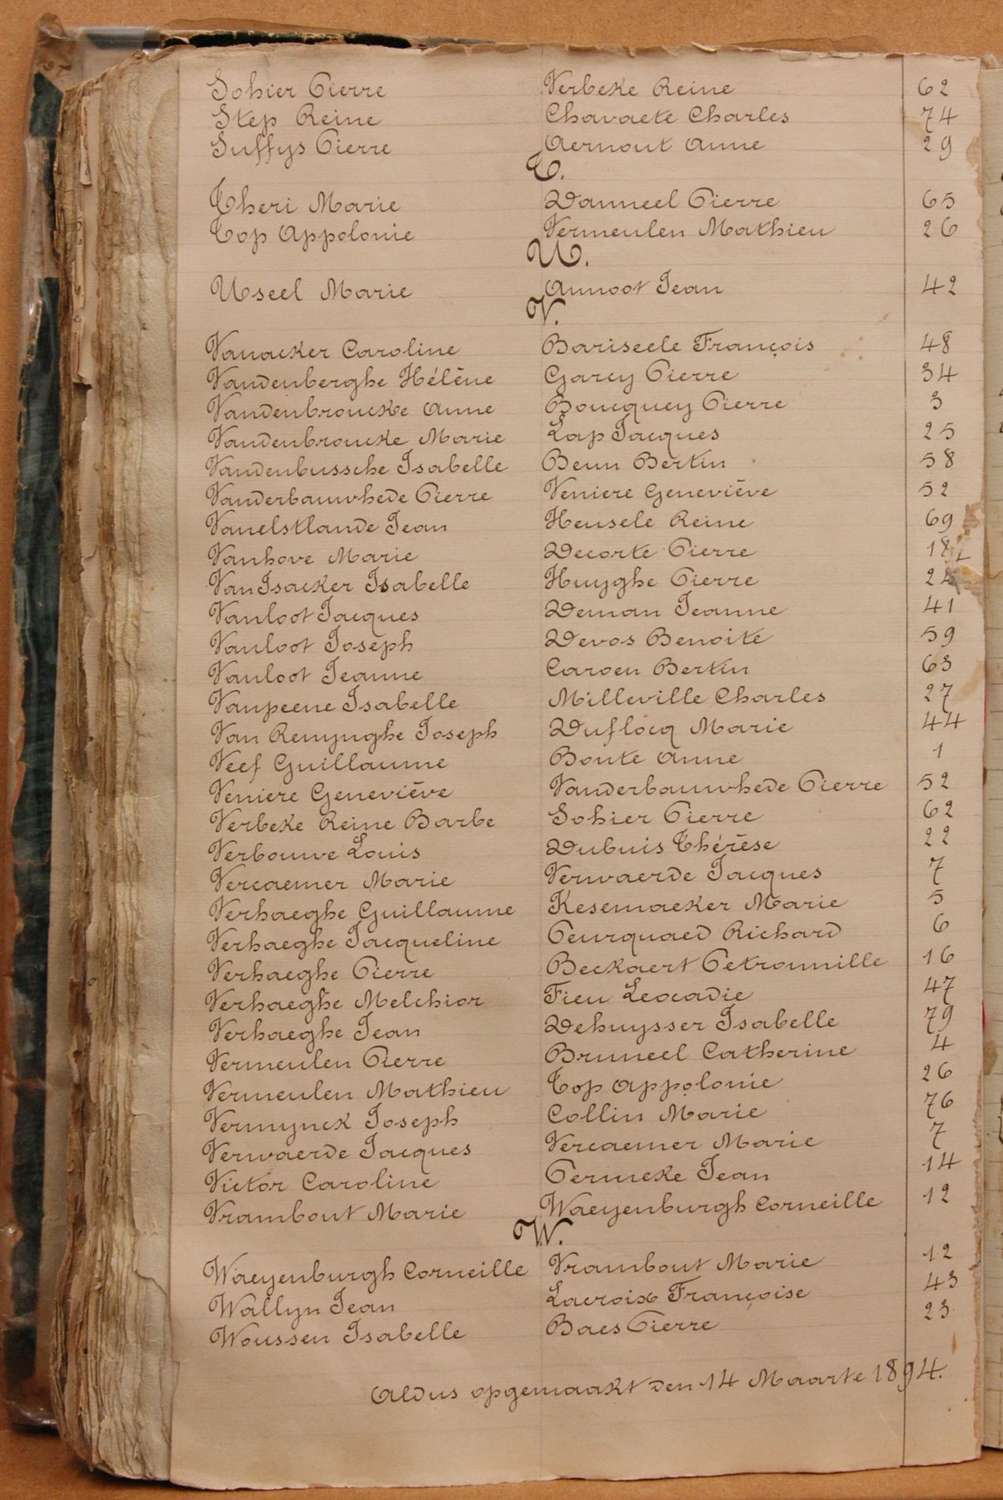 Sohier Pierre Verbeke Reine 62
Step Reine Chavaete Charles 74
Suffys Pierre Aernout Anne 29
T.
Theri Marie Danneel Pierre 65
Top Appolonie Vermeulen Mathieu 26
U.
Useel Marie Annoot Jean 42
V.
Vanacker Caroline Bariseele François 48
Vandenberghe Hélène Garcy Pierre 34
Vandenbroucke Anne Boucquey Pierre 3
Vandenbroucke Marie Lap Jacques 25
Vandenbussche Isabelle Beun Bertin 58
Vanderbauwhede Pierre Veniere Geneviève 52
Vanelstlande Jean Heusele Reine 69
Vanhove Marie Decorte Pierre 18
VanIsacker Isabelle Huyghe Pierre
Vanloot Jacques Deman Jeanne 41
Vanloot Joseph Devos Benoite 59
Vanloot Jeanne Caroen Bertin 63
Vanpeene Isabelle Milleville Charles 27
Van Renynghe Joseph Duflocq Marie 44
Veef Guillaume Bonte Anne 1
Veniere Geneviève Vanderbauwhede Pierre 52
Verbeke Reine Barbe Sohier Pierre 62
Verbouwe Louis Dubuis Thérèse 22
Vercaemer Marie Verwaerde Jacques 7
Verhaeghe Guillaume Kesemaeker Marie 5
Verhaeghe Jacqueline Peurquaed Richard 6
Verhaeghe Pierre Beckaert Petronnille 16
Verhaeghe Melchior Fieu Leocadie 47
Verhaeghe Jean Dehuysser Isabelle 79
Vermeulen Pierre Bruneel Catherine 4
Vermeulen Mathieu Top Appolonie 26
Vermynck Joseph Collin Marie 76
Verwaerde Jacques Vercaemer Marie 7
Victor Caroline Permeke Jean 14
Vrambout Marie Waeyenburgh Corneille 12
W.
Waeyenburgh Corneille Vrambout Marie 12
Wallyn Jean Lacroix Françoise 43
Woussen Isabelle Baes Pierre 23
Aldus opgemaakt den 14 Maarte 1894.